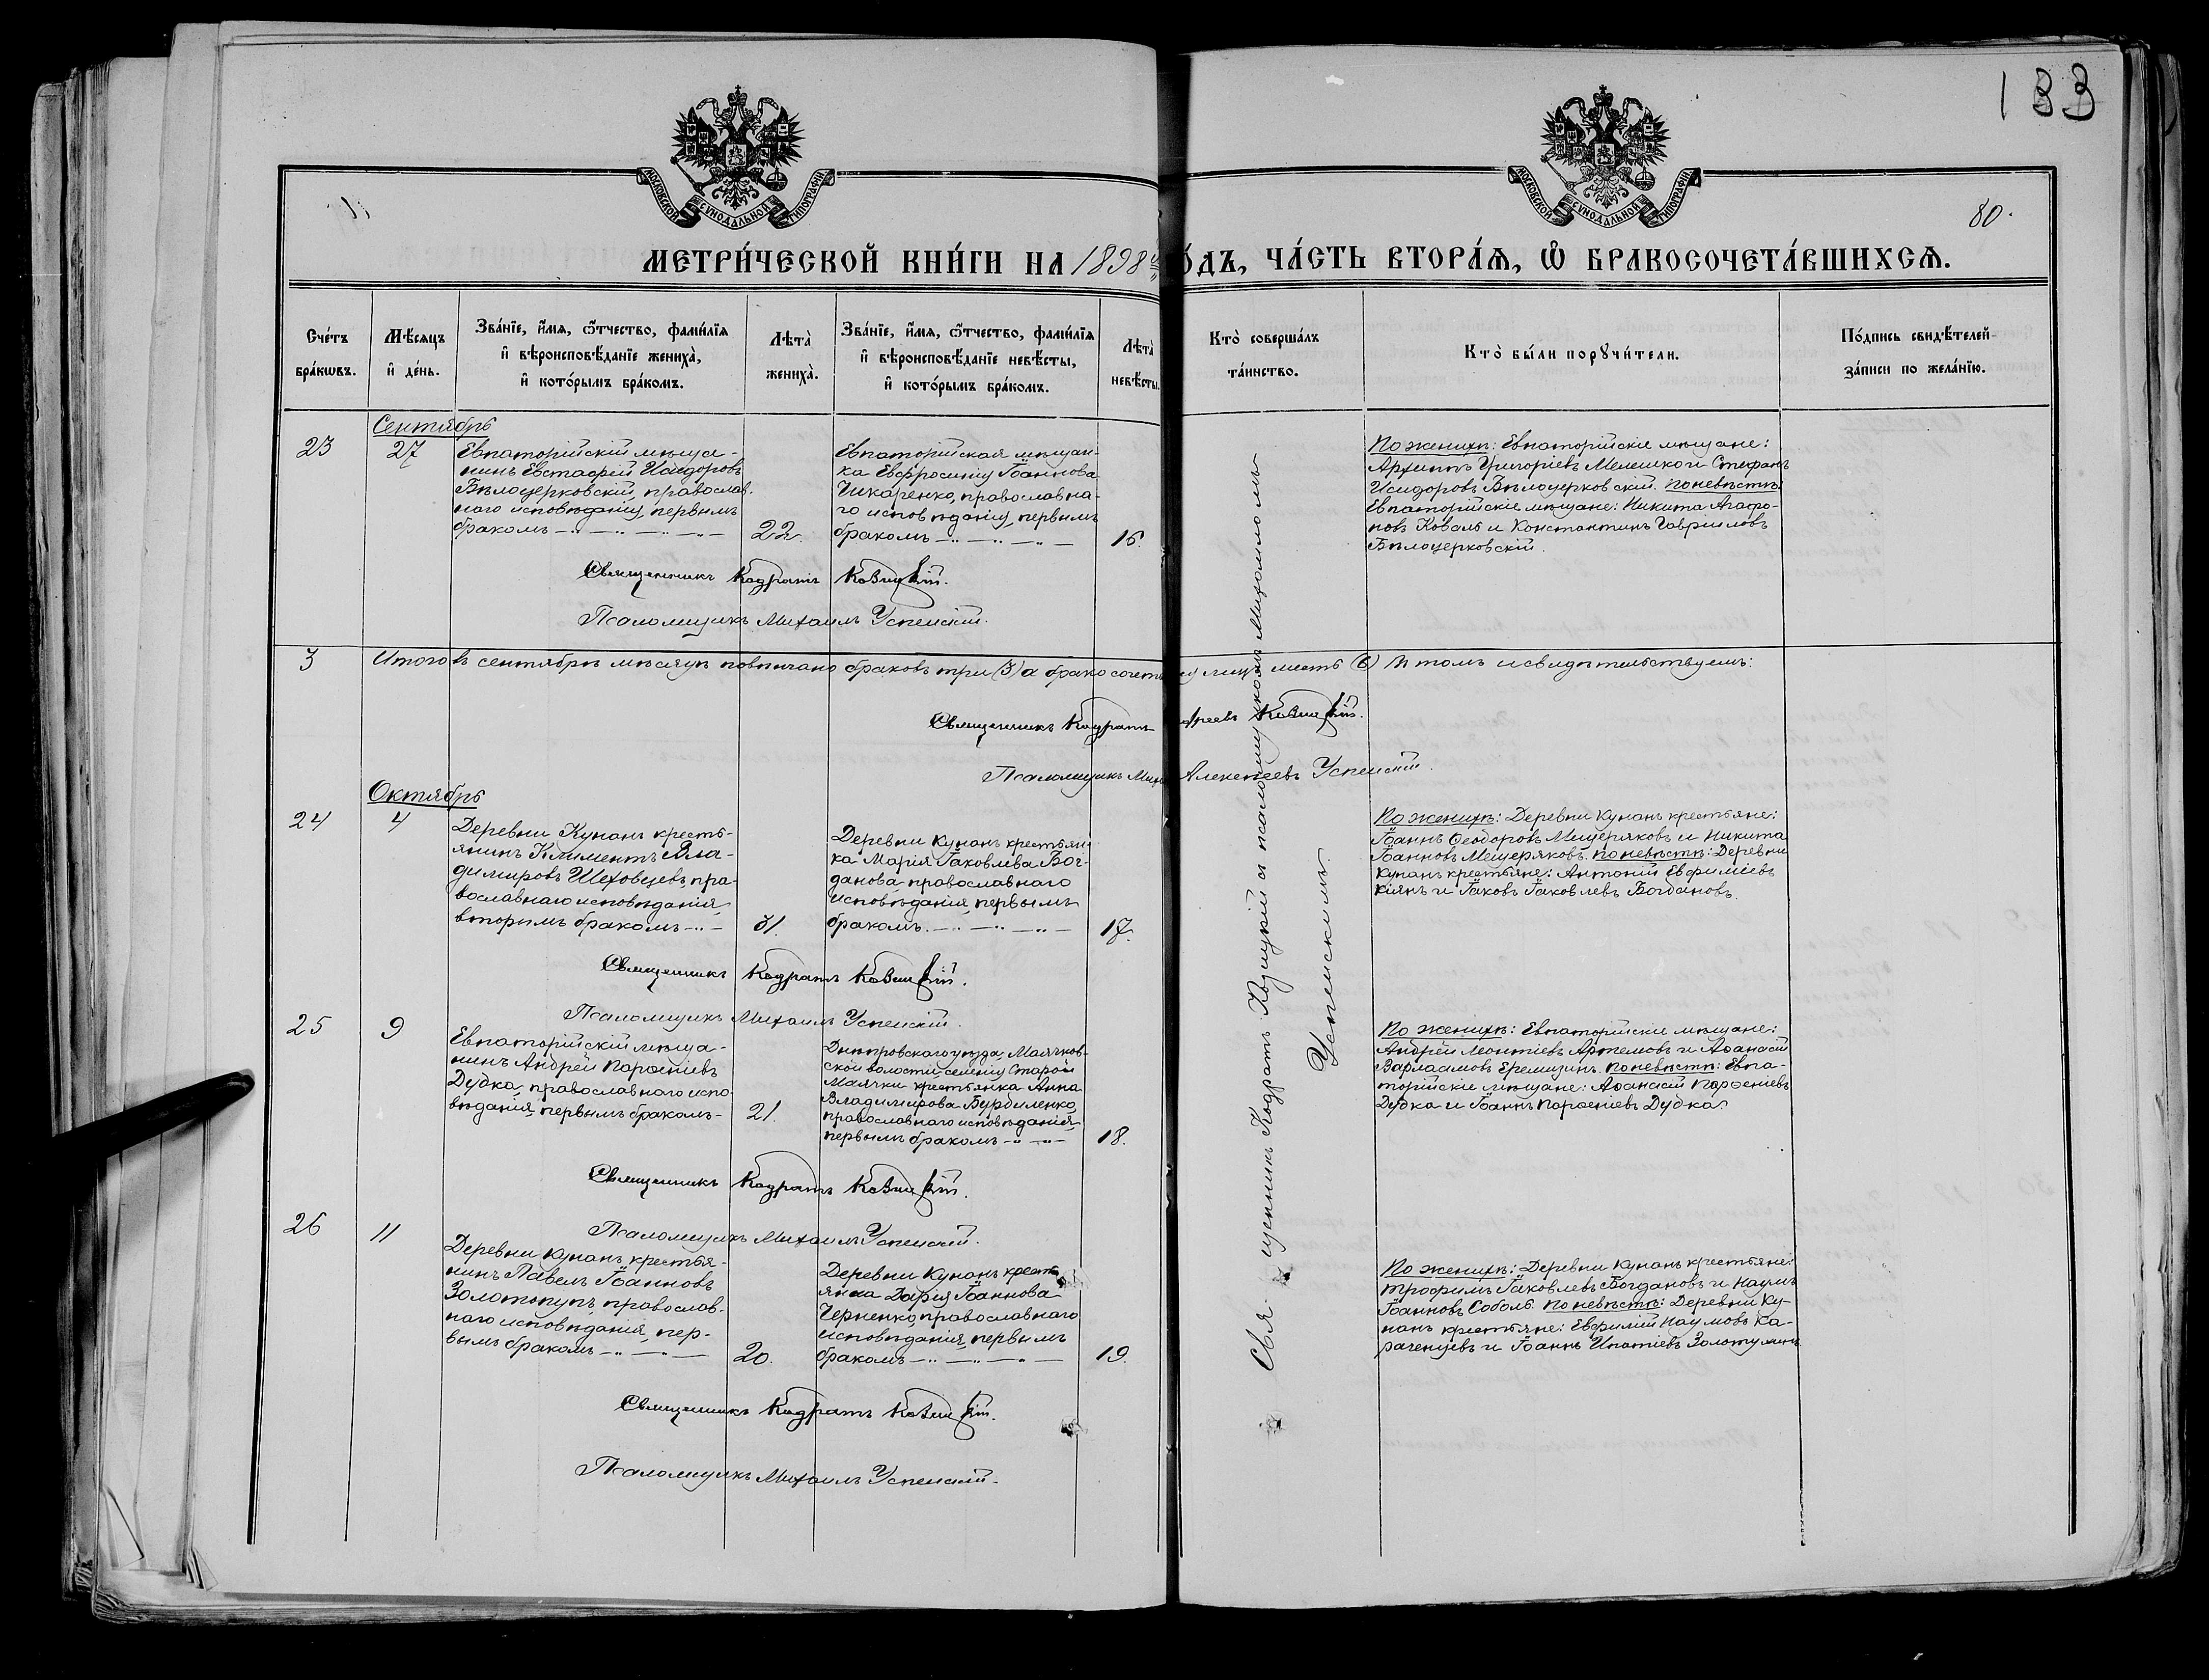 133
МОСКОВСКОЙ СѴНОДАЛЬНОЙ ТИПОГРАФІИ
МОСКОВСКОЙ СѴНОДАЛЬНОЙ ТИПОГРАФІИ
80.
МЕТРИ́ЧЕСКОЙ КНИ́ГИ НА 1898 й
О́ДЪ, ЧА́СТЬ ВТОРА́Ѧ, Ѽ БРАКОСОЧЕТА́ВШИХСѦ.
Сче́тъ
бра́кѡвъ.
Мѣ́сяцъ
и҆ де́нь.
Зва́нїе, и҆́мѧ, ѻ҆́тчество, фами́лїѧ
и҆ вѣроисповѣ́данїе жениха̀,
и҆ кото́рымъ бра́комъ.
Лѣта̀
жениха̀.
Зва́нїе, и҆́мѧ, ѻ҆́тчество, фами́лїѧ
и҆ вѣроисповѣ́данїе невѣ́сты,
и҆ кото́рымъ бра́комъ.
Лѣта̀
невѣ́сты.
Кто̀ соверша́лъ
та́инство.
Кто̀ бы́ли порꙋчи́тели.
По́дпись свидѣ́телей
за́писи по жела́нїю.
Сентябрь
23
27
Евпаторійскій мѣща-
нинъ Евстафій Исидоровъ
Бѣлоцерковскій, православ-
наго исповѣданія, первымъ
бракомъ
22.
Евпаторійская мѣщан-
ка Евфросинія Іоаннова
Чикаренко, православна-
го исповѣданія, первымъ
бракомъ
16.
По женихѣ: Евпаторійскіе мѣщане:
Архиппъ Григоріевъ Мелешко и Стефанъ
Исидоровъ Бѣлоцерковскій. По невѣстѣ:
Евпаторійскіе мѣщане: Никита Агафо-
новъ Коваль и Константинъ Гавриловъ
Бѣлоцерковскій.
Священникъ Кодратъ
Псаломщикъ Михаилъ Успенскій.
3
Итого въ сентябрѣ мѣсяцѣ повѣнчано браковъ три (3) а лицъ шесть (6) в томъ и свидѣтельствуемъ:
Священникъ Кодратъ
Псаломщикъ Алексеевъ Успенскій.
Октябрь
24
4
Деревни Кунанъ кресть-
янинъ Климентъ Вла-
димировъ Шеховцевъ, пра-
вославнаго исповѣданія,
вторымъ бракомъ
31.
Деревни Кунанъ крестьян-
ка Марія Іаковлева Бог-
данова православнаго
исповѣданія, первымъ
бракомъ.
17.
По женихѣ: Деревни Кунанъ крестьяне:
Іоаннъ Ѳеодоровъ Мещеряковъ и Никита
Іоанновъ Мещеряковъ. По невѣстѣ: Деревни
Кунанъ крестьяне: Антоній Евфиміевъ
Кіянъ и Іаковъ Іаковлевъ Богдановъ.
Священникъ Кодратъ
Псаломщикъ Михаилъ Успенскій.
25
9
Евпаторійскій мѣща-
нинъ Андрей Парѳеніевъ
Дудка, православнаго испо-
вѣданія, первымъ бракомъ
21.
Днѣпровскаго уѣзда, Маячков-
ской волости, селенія Старой
Маячки крестьянка Анна
Владимирова Бурдиленко,
православнаго исповѣданія,
первымъ бракомъ
18.
По женихѣ: Евпаторійскіе мѣщане:
Андрей Леонтіевъ Артемовъ и Аѳанасій
Варлаамовъ Еремизинъ. По невѣстѣ: Евпа-
торійскіе мѣщане: Аѳанасій Парѳеніевъ
Дудка и Іоаннъ Парѳеніевъ Дудка.
Священникъ Кодратъ
Псаломщикъ Михаилъ Успенскій.
26
11
Деревни Кунанъ крестья-
нинъ Павелъ Іоанновъ
Золотопупъ, православ-
наго исповѣданія, пер-
вымъ бракомъ
20.
Деревни Кунанъ кресть-
янка Іоаннова
Черненко, православнаго
исповѣданія, первымъ
бракомъ
19.
По женихѣ: Деревни Кунанъ крестьяне:
Трофимъ Іаковлевъ Богдановъ и Наумъ
Іоанновъ Соболь. По невѣстѣ: Деревни Ку-
нанъ крестьяне: Евфимій Наумовъ Ка-
раченцевъ и Іоаннъ Ипатіевъ
Священникъ Кодратъ
Псаломщикъ Михаилъ Успенскій.
Священникъ Кодратъ съ псаломщикомъ Михаиломъ
Успенскимъ.